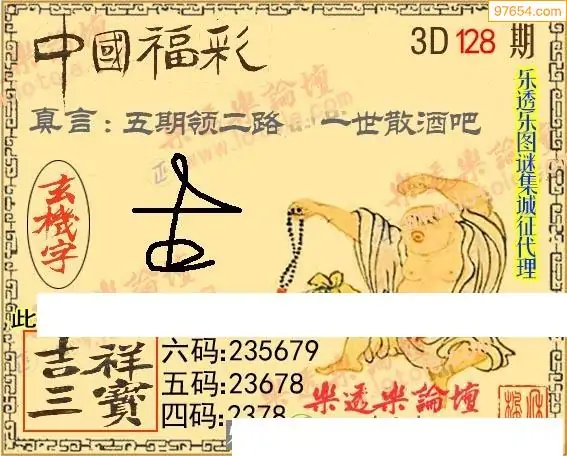 97654.com
中國福彩
3D 128 期
真言：五期领二路 一世散酒吧
乐透乐图谜集城征代理
玄機字
此
吉祥
三寶
六码:235679
五码:23678
四码:2378
樂透樂論壇